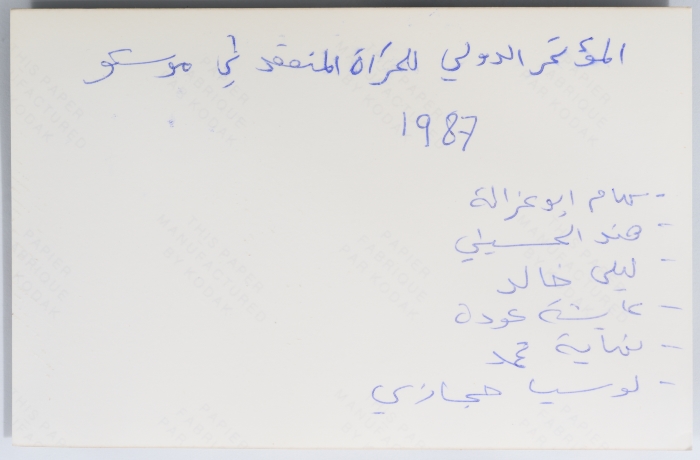 المؤتمر الدولي للمرأة المنعقد في موسكو
1987
- سهام ابو غزالة
- هند الحسيني
- ليلى خالد
- عائشة عودة
- نهاية محمد
- لوسيا حجازي
THIS PAPER
MANUFACTURED
BY KODAK